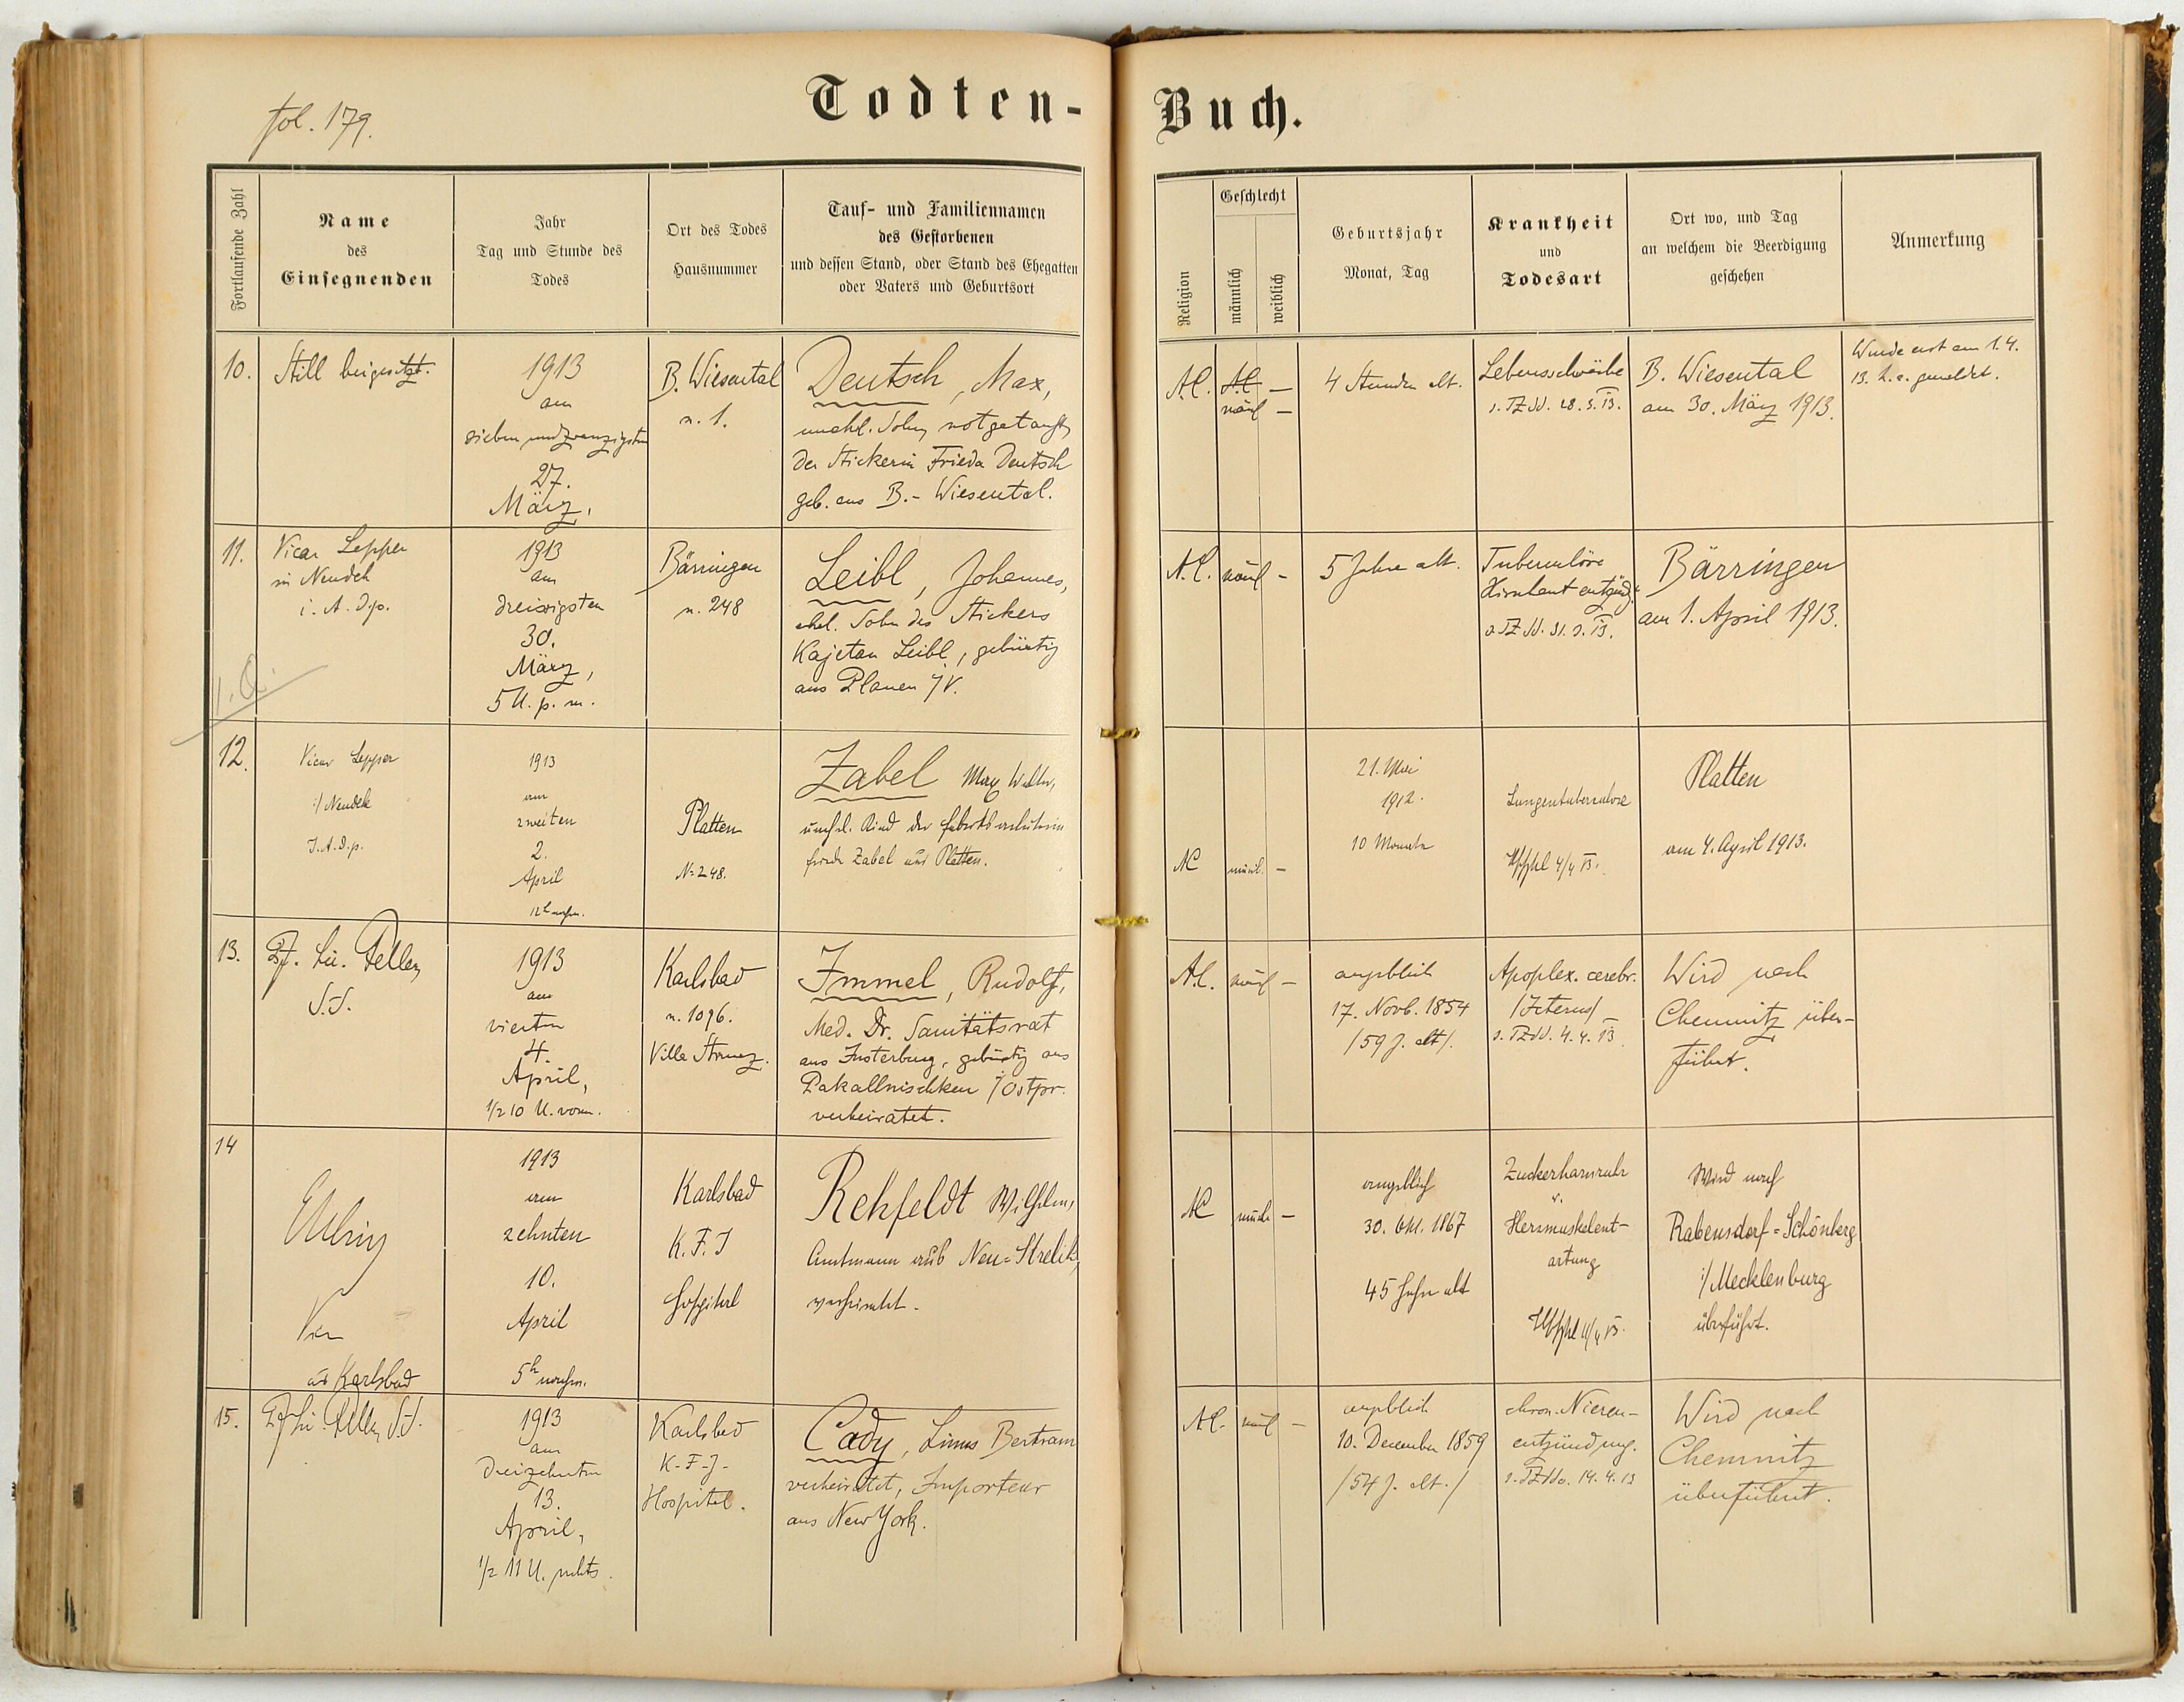 Todten-Buch.
fol. 179.
Fortlaufende Zahl
Name
des
Einsegnenden
Jahr
Tag und Stunde des
Todes
Ort des Todes
Hausnummer
Tauf- und Familiennamen
des Gestorbenen
und dessen Stand, oder Stand des Ehegatten
oder Vaters und Geburtsort
Religion
Geschlecht
männlich
weiblich
Geburtsjahr
Monat, Tag
Krankheit
und
Todesart
Ort wo, und Tag
an welchem die Beerdigung
geschehen
Anmerkung
10.
Still beigesetzt.
1913
am
siebenundzwanzigsten
27.
März,
B. Wiesental
n. 1.
Deutsch, Max,
unehl. Sohn, notgetauft,
der Stickerin Frieda Deutsch
geb. aus B.- Wiesental.
A.C.
männl –
4 Stunden alt.
Lebensschwäche
28. 3. 13.
B. Wiesental
am 30. März 1913.
Wurde erst am 1.4.
13. h. a. gemeldet.
11.
Vicar Lepper
in Neudek
i. A. d. p.
1913
am
dreissigsten
30.
März,
5 U. p. m.
Bärringen
n. 248
Leibl, Johannes,
ehel. Sohn des Stickers
Kajetan Leibl, gebürtig
aus Plauen i/V.
A.C.
männl –
5 Jahre alt.
Tuberculöse
Hirnhautentzünd.
31. 3. 13.
Bärringen
am 1. April 1913.
12.
Vicar Lepper
i/ Neudek
I. A. d. p.
1913
am
zweiten
2.
April
12h nachm.
Platten
No 248.
Zabel Max Walter,
unehel. Kind der Fabriksarbeiterin
Frieda Zabel aus Platten.
AC
männl. –
21. Mai
1912.
10 Monate
Lungentuberculose
4/4 13.
Platten
am 4. April 1913.
13.
Pf. Lic. Feller,
S.J.
1913
am
vierten
4.
April,
1/2 10 U. vorm.
Karlsbad
n. 1096.
Immel, Rudolf,
Med. Dr. Sanitätsrat
aus Insterburg, gebürtig aus
Pakallnischken i/Ostpr.
verheiratet.
A.C.
männl –
angeblich
17. Novb. 1854
/59 J. alt/.
Apoplex. cerebr.
/Icterus/
4. 4. 13.
Wird nach
Chemnitz über-
führt.
14
Vicar
aus Karlsbad
1913
am
zehnten
10.
April
5h nachm.
Karlsbad
K. F. J
Hospital
Rehfeldt Wilhelm,
Amtmann aus Neu=Strelitz,
verheiratet.
AC
männl –
angeblich
30. Okt. 1867
45 Jahre alt
Zuckerharnruhr
u.
Herzmuskelent-
artung
11/4 13.
Wird nach
Rabensdorf=Schönberg
i/Mecklenburg
überführt.
15.
Pf. Lic. Feller, S.J.
1913
am
dreizehnten
13.
April,
1/2 11 U. nchts.
Karlsbad
K-F-J-
Hospital.
Cady, Linus Bertram
verheiratet, Importeur
aus New York.
A.C.
männl –
angeblich
10. December 1859
/54 J. alt./
chron. Nieren-
entzündung.
14. 4. 13
Wird nach
Chemnitz
überführt.